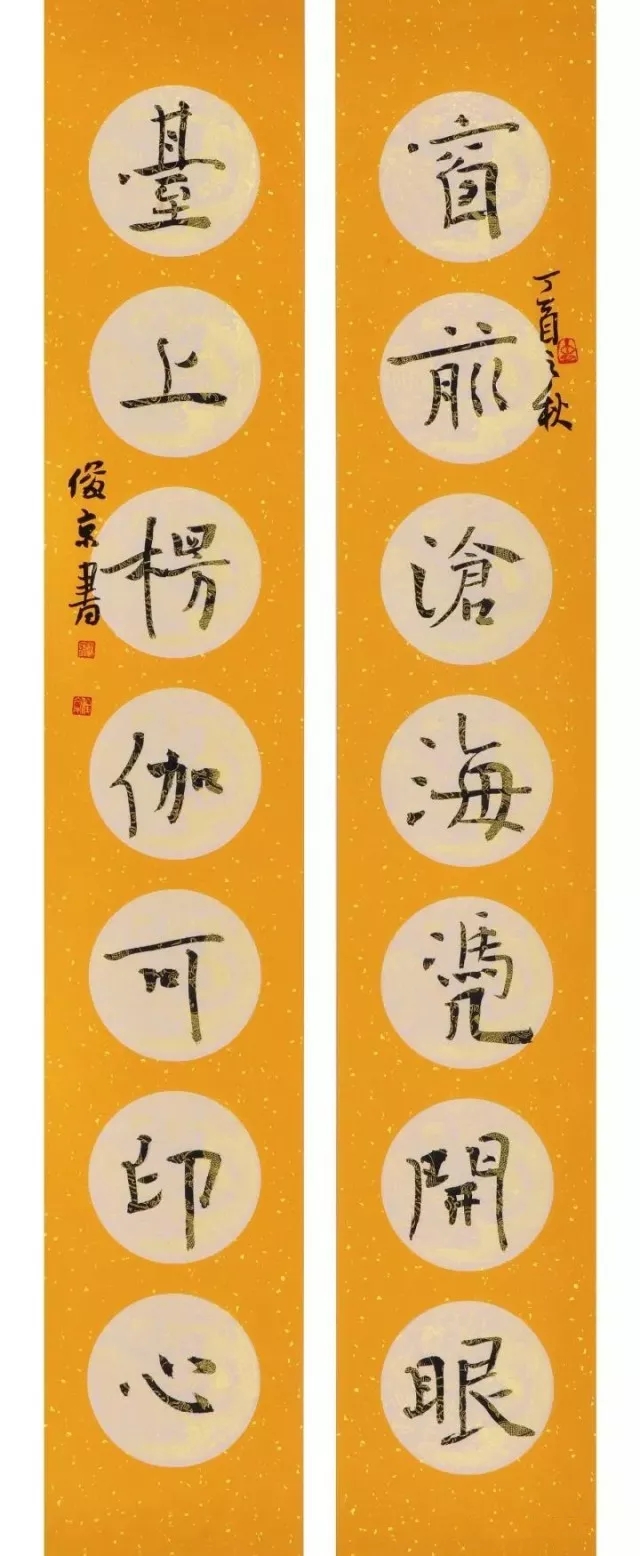 窗前滄海凴開眼
丁酉之秋
臺上楞伽可印心
俊京書